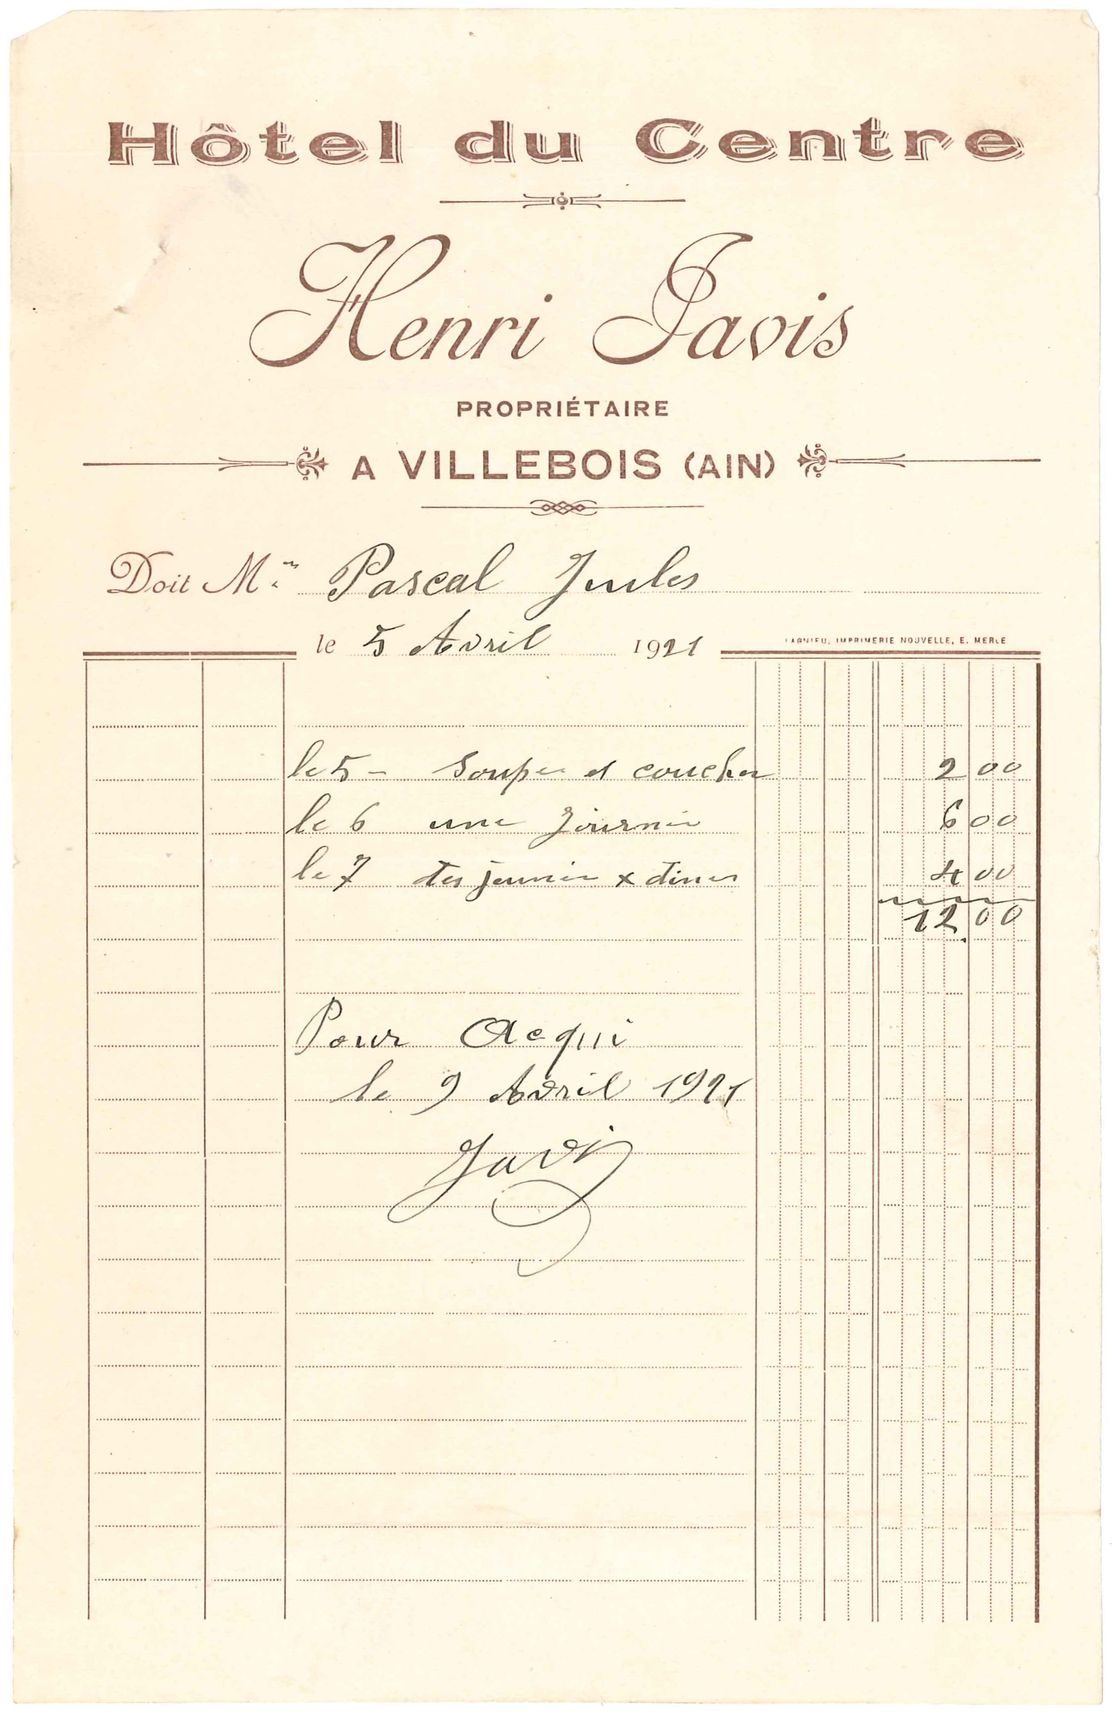 Hôtel du Centre
Henri Javis
PROPRIÉTAIRE
A VILLEBOIS (AIN)
Doit Mr Pascal Jules
le 5 Avril 1921
LAGNIEU, IMPRIMERIE NOUVELLE, E. MERLE
le 5 - Souper et coucher 2 00
le 6 une Journée 6 00
le 7 des jeunér x diner 4 00
12 00
Pour Acqui
le 9 Avril 1921
Javis